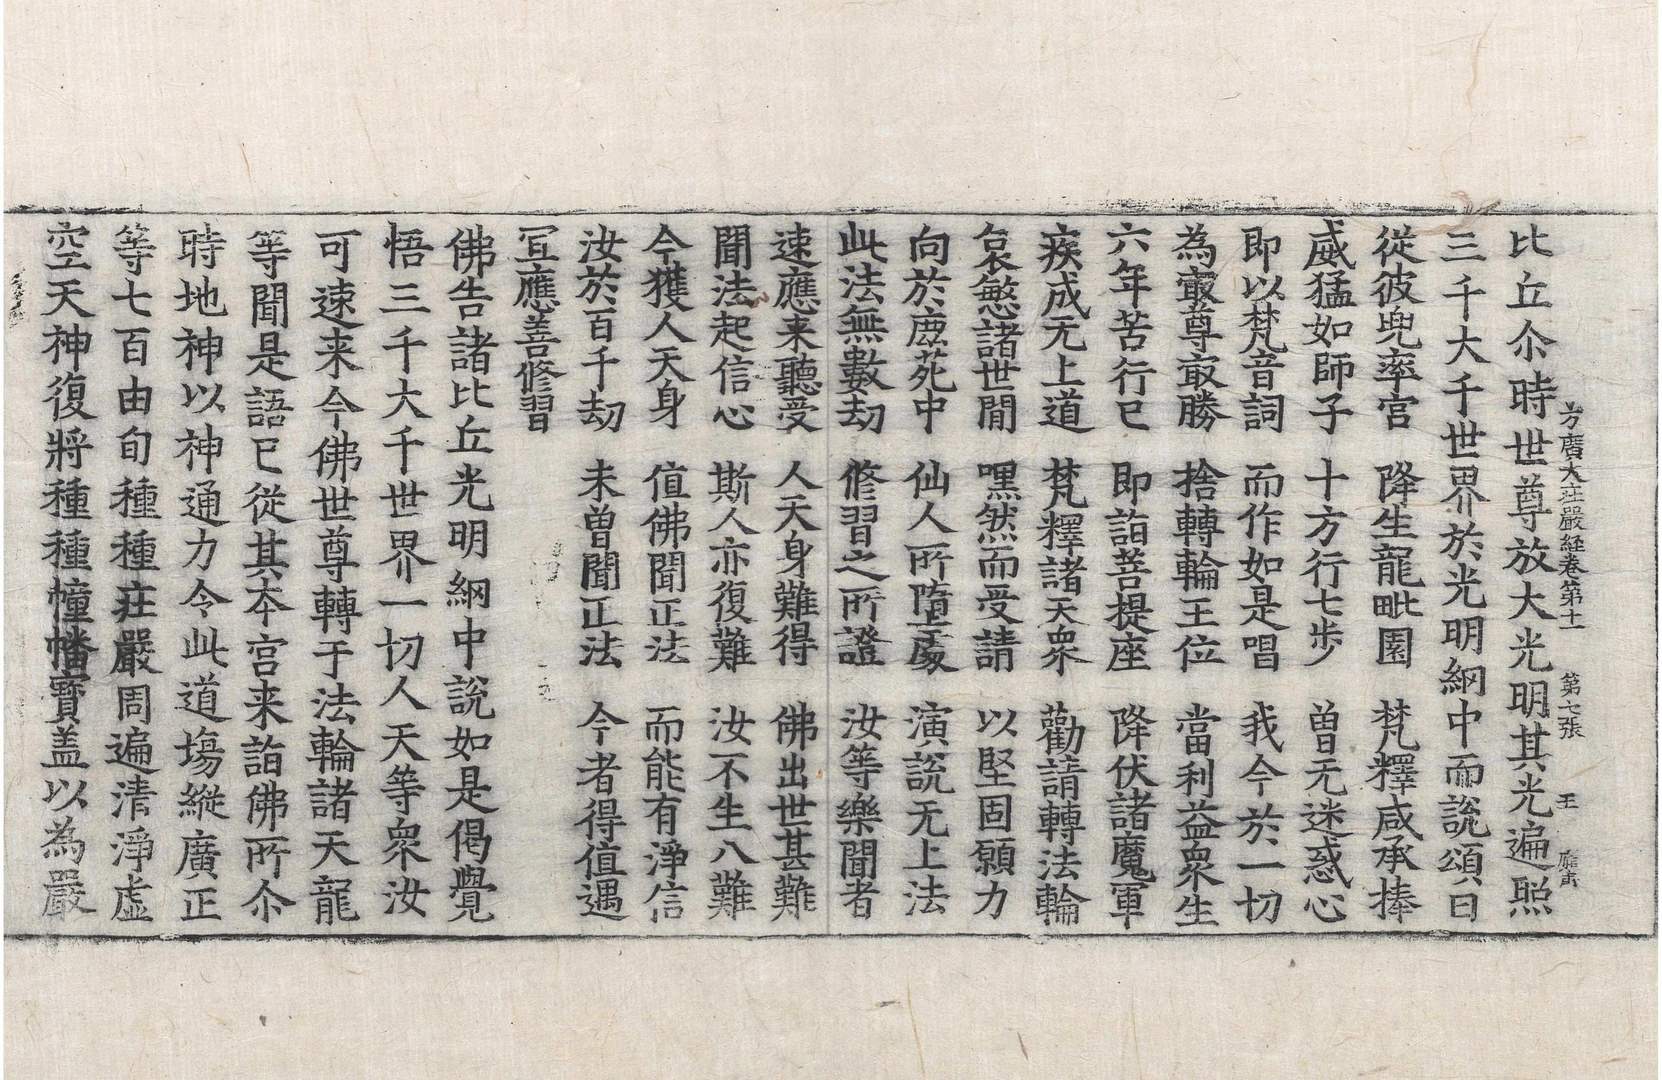 方廣大莊嚴経卷第十一 第七張 王
比丘尒時世尊放大光明其光遍照
三千大千世界於光明網中而說頌曰
從彼兜率宮 降生龍毗園 梵釋咸承捧
威猛如師子 十方行七步 曾无迷惑心
即以梵音詞 而作如是唱 我今於一切
為㝡尊㝡勝 捨轉輪王位 當利益衆生
六年苦行已 即詣菩提座 降伏諸魔軍
疾成无上道 梵釋諸天衆 勸請轉法輪
哀愍諸世閒 嘿然而受請 以堅固願力
向於鹿苑中 仙人所墮處 演說无上法
此法無數劫 修習之所證 汝等樂聞者
速應来聽受 人天身難得 佛出世甚難
聞法起信心 斯人亦復難 汝不生八難
今獲人天身 值佛聞正法 而能有淨信
汝於百千劫 未曾聞正法 今者得值遇
冝應善修習
佛告諸比丘光明網中說如是偈覺
悟三千大千世界一切人天等衆汝
可速来今佛世尊轉于法輪諸天龍
等聞是語已從其夲宮来詣佛所尒
時地神以神通力令此道場縱廣正
等七百由旬種種莊嚴周遍清淨虛
空天神復將種種幢幡寶盖以為嚴